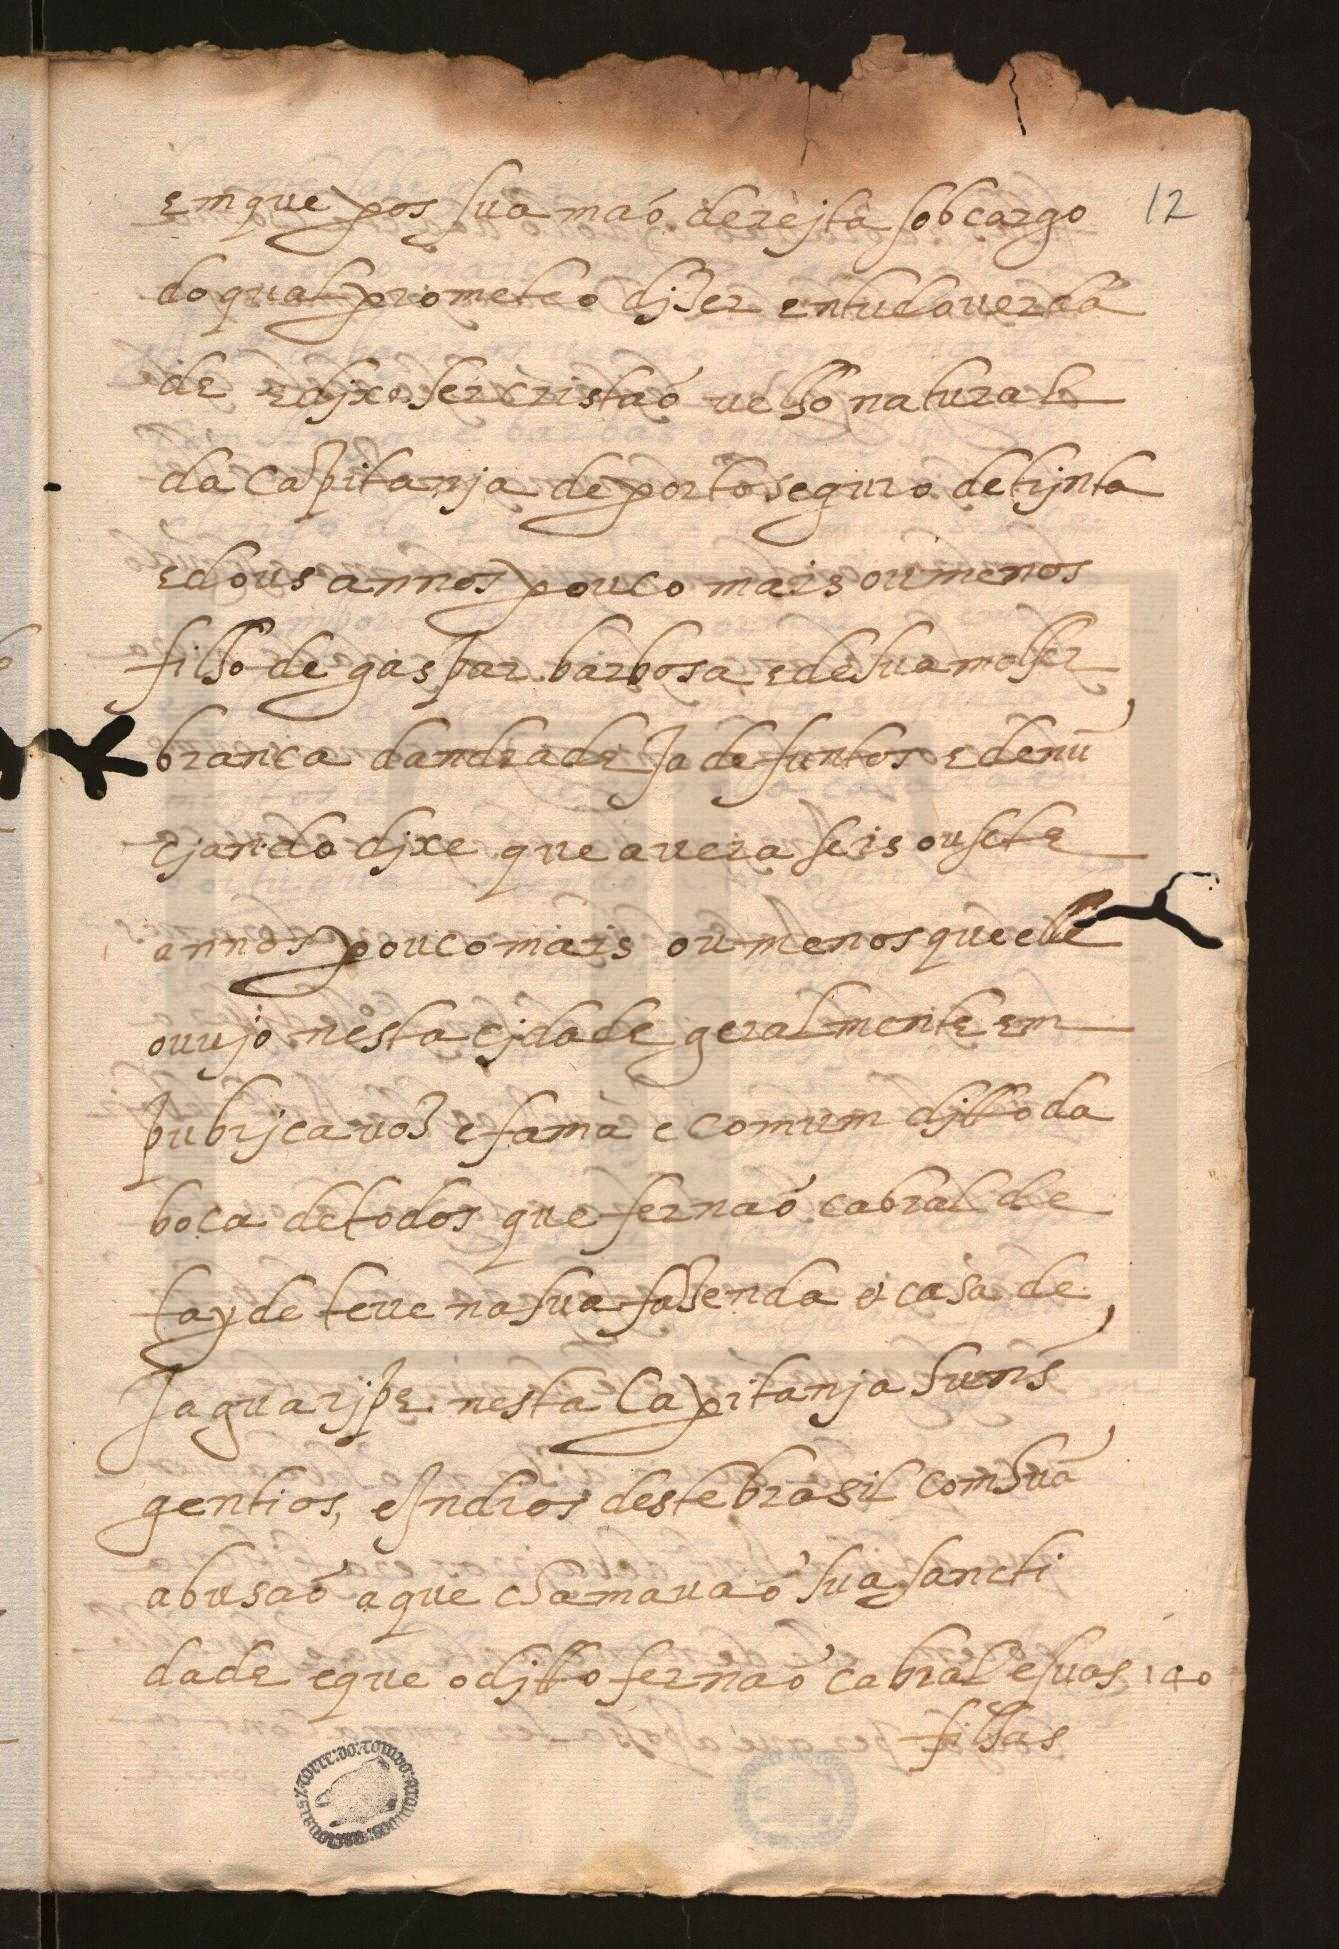 em que pos sua maõ dereita sob cargo
12
do qual prometeo djzer en tudo uerda
de e djxe ser cristaõ uelho natural
da Capitanja de porto seguro de tijnta
e dous annos pouco mais ou menos
filho de gaspar barbosa e de sua molher
branca dandrade Ja defuntos e denũ
cjando djxe que auera seis ou sete
annos pouco mais ou menos que elle
ouujo nesta cjdade geralmente em
pubrjca uoz e fama e comum djtto da
boca de todos que fernaõ cabral de
tayde teue na sua fazenda e casa de
Jaguarjpe nesta Capitanja huns
gentios, e Indios deste brasil com hũa
abusaõ a que chamauaõ sua sancti
dade e que o djtto fernaõ cabral e suas
filhas